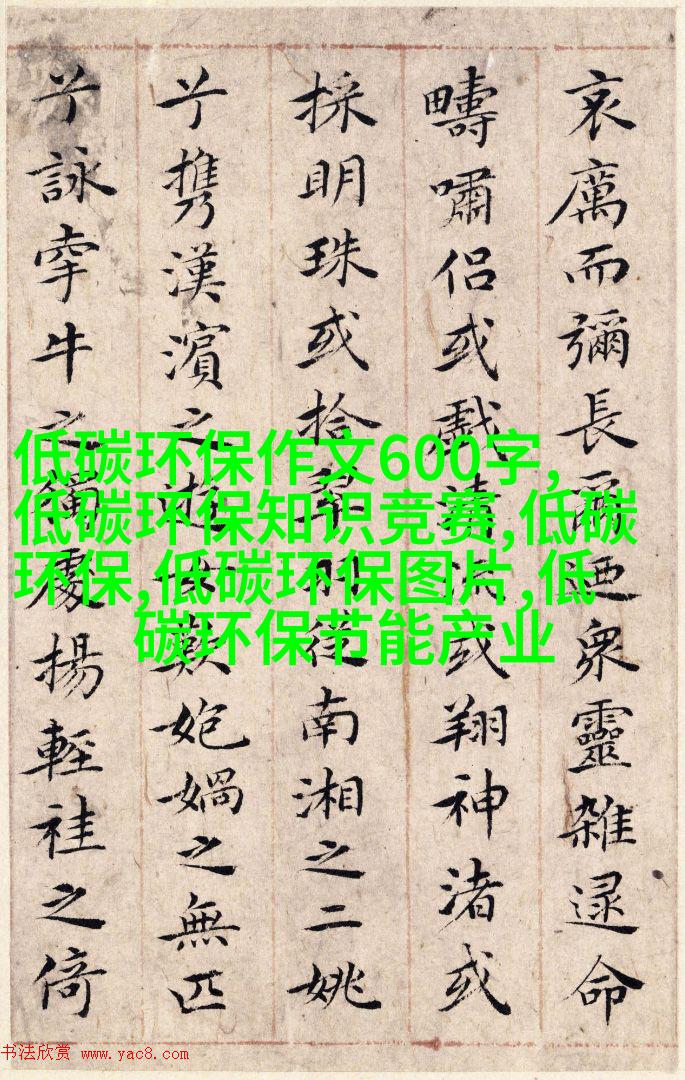 哀厲而彌長爾迺衆靈雜遝命
疇嘯侶或戲清流或翔神渚或
採明珠或拾翠羽從南湘之二姚
兮携漢濱之遊女歎妑媧之無匹
兮詠牽牛之獨處揚輕袿之倚
低碳环保作文600字,
低碳环保知识竞赛,低碳
环保,低碳环保图片,低
碳环保节能产业
书法欣赏 www.yac8.com